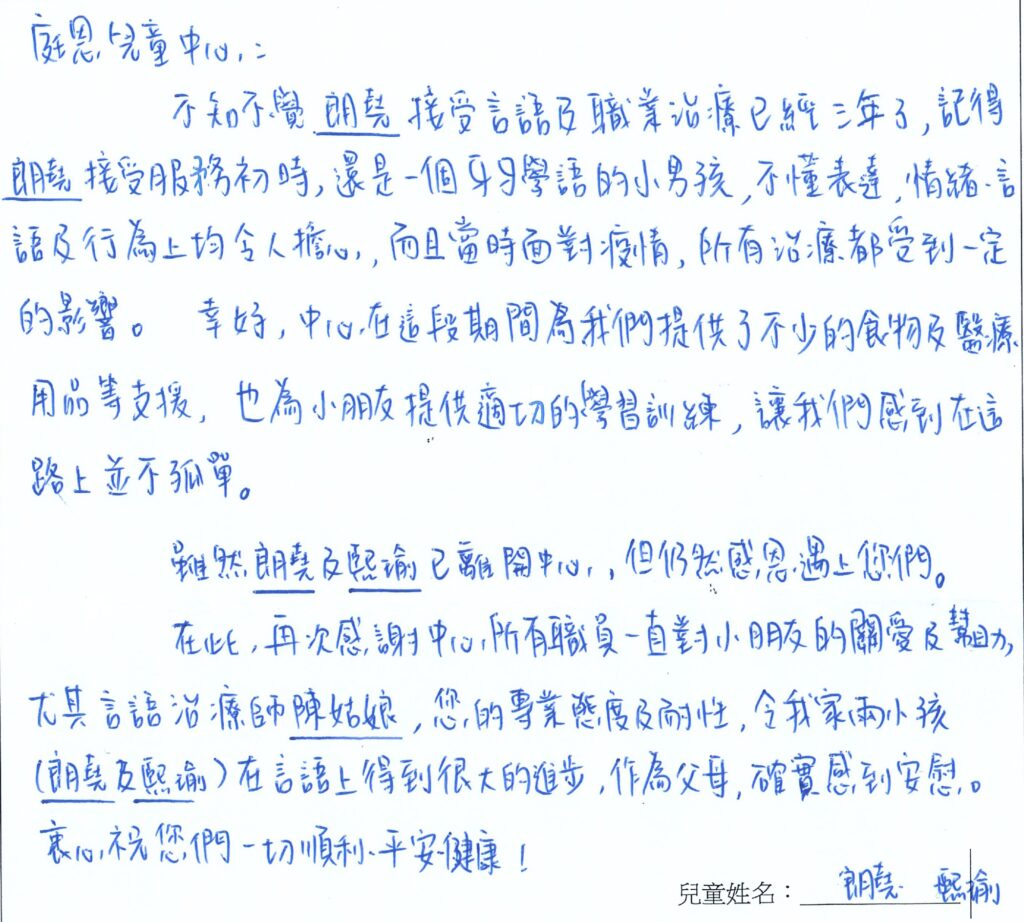 庭恩兒童中心：
不知不覺朗堯接受言語及職業治療已經三年了，記得
朗堯接受服務初時，還是一個牙牙學語的小男孩，不懂表達，情緒、言
語及行為上均令人擔心，而且當時面對疫情，所有治療都受到一定
的影響。 幸好，中心在這段期間為我們提供了不少的食物及醫療
用品等支援，也為小朋友提供適切的學習訓練，讓我們感到在這
路上並不孤單。
雖然朗堯及熙瑜已離開中心，但仍然感恩遇上您們。
在此，再次感謝中心所有職員一直對小朋友的關愛及幫助，
尤其言語治療師陳姑娘，您的專業態度及耐性，令我家兩小孩
(朗堯及熙瑜)在言語上得到很大的進步，作為父母，確實感到安慰。
衷心祝您們一切順利、平安、健康！
兒童姓名：朗堯 熙瑜